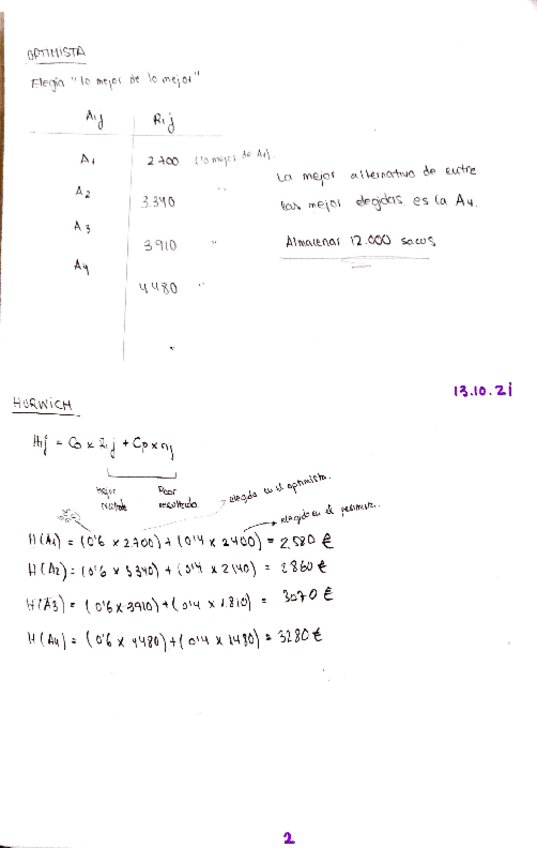 OPTIMISTA
Elegía "lo mejor de lo mejor"
Aij Rij
A1 2.700 (lo mejor de A1).
A2 3.340 "
A3 3910 "
A4 4480 "
La mejor alternativa de entre
las mejor elegidas es la A4.
Almacenar 12.000 sacos
13.10.21
HURWICH
Hij = Co x zij + Cp x nj
mejor resultado Peor resultado
elegida en el optimista.
elegido en el pesimista.
H(A1) = (0'6 x 2.700) + (0'4 x 2400) = 2580 €
H(A2) = (0'6 x 3340) + (0'4 x 2140) = 2860 €
H(A3) = (0'6 x 3910) + (0'4 x 1.810) = 3070 €
H(A4) = (0'6 x 4480) + (0'4 x 1480) = 3280 €
2